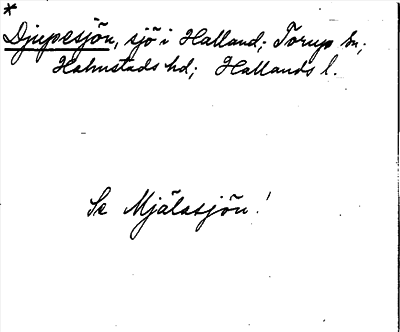 *
Djupesjön, sjö i Halland; Torup sn;
Halmstads hd; Hallands l.
Se Mjälasjön!